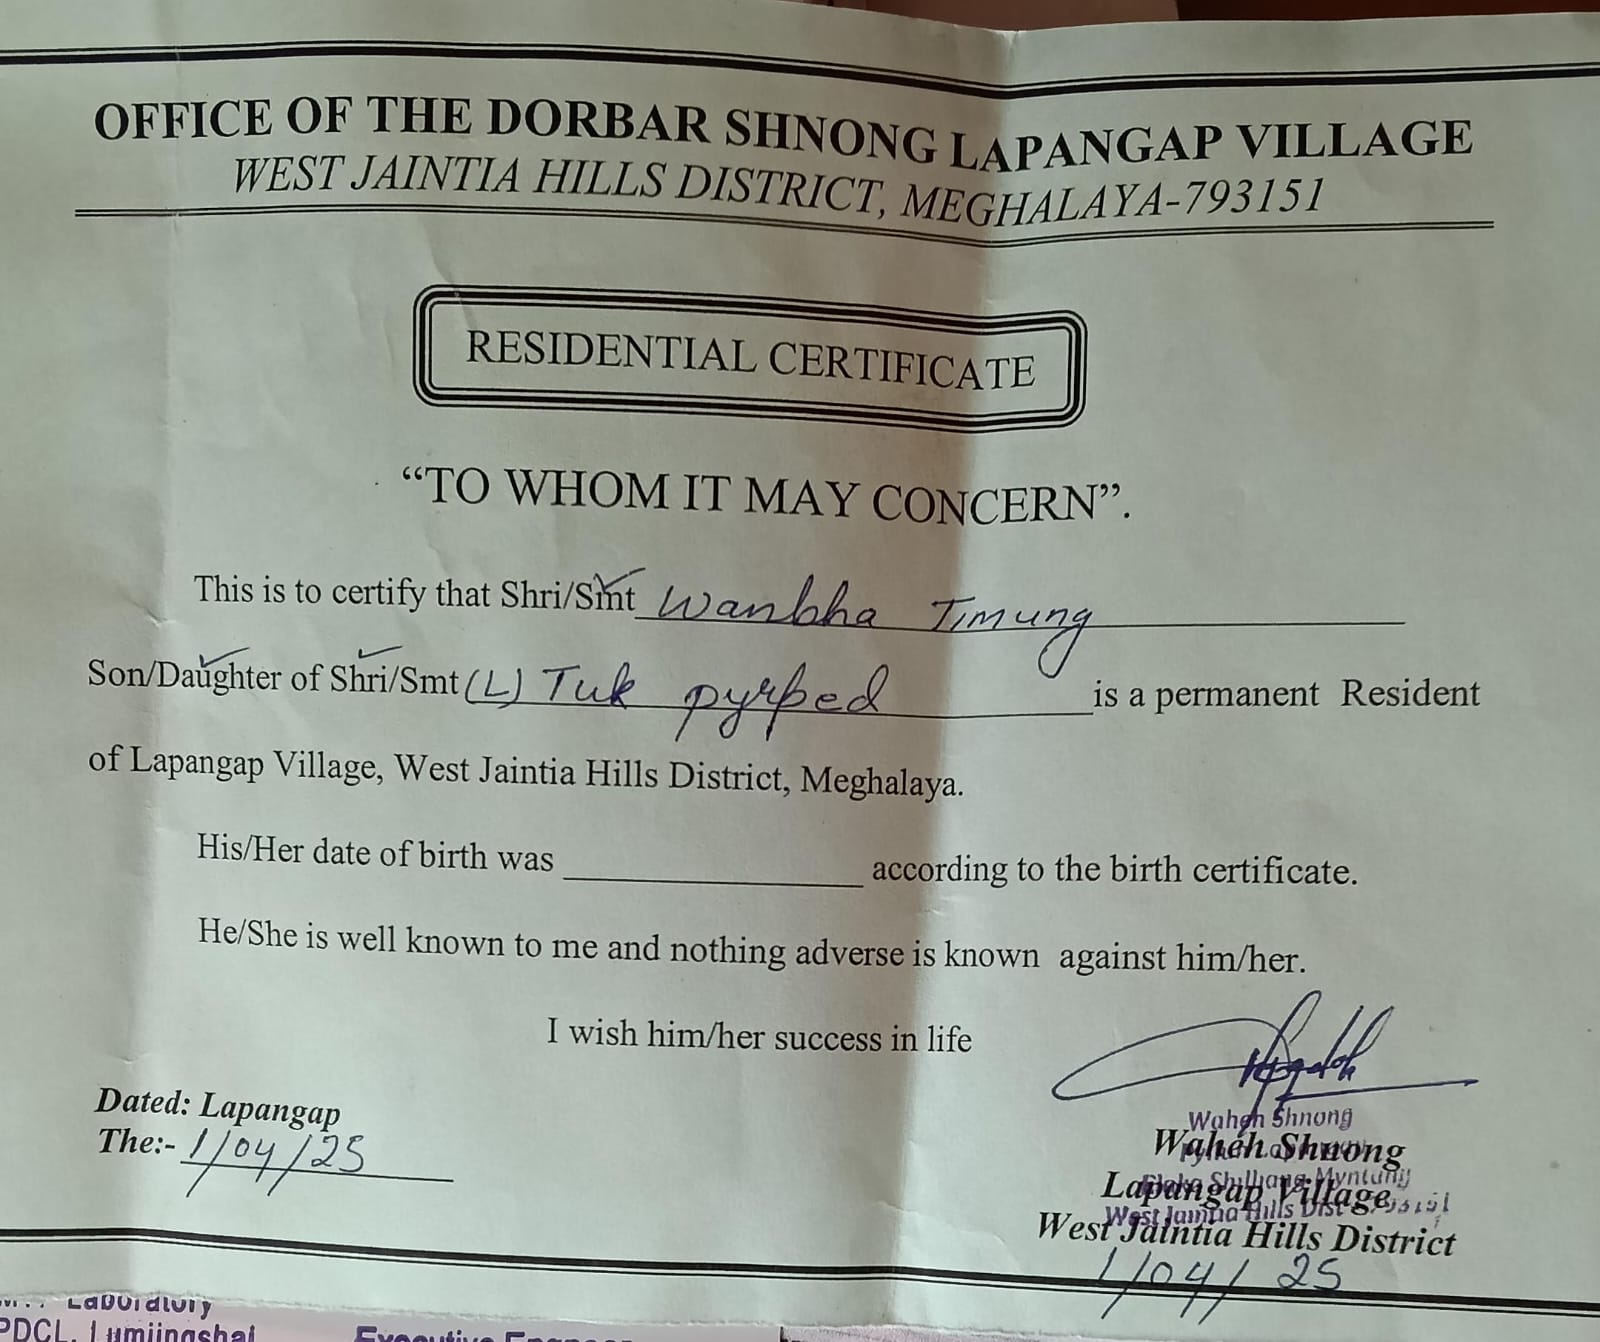 OFFICE OF THE DORBAR SHNONG LAPANGAP VILLAGE
WEST JAINTIA HILLS DISTRICT, MEGHALAYA-793151
RESIDENTIAL CERTIFICATE
“TO WHOM IT MAY CONCERN”.
This is to certify that Shri/Smt Wanbha Timung
Son/Daughter of Shri/Smt (L) Tuk pyrbed is a permanent Resident
of Lapangap Village, West Jaintia Hills District, Meghalaya.
His/Her date of birth was according to the birth certificate.
He/She is well known to me and nothing adverse is known against him/her.
I wish him/her success in life
Dated: Lapangap
The:- 1/04/25
Waheh Shnong
Waheh Shnong
Lapangap Village
West Jaintia Hills Dist
West Jaintia Hills District
1/04/25
Laboratory
PDCL, Lumjingshai
Executive